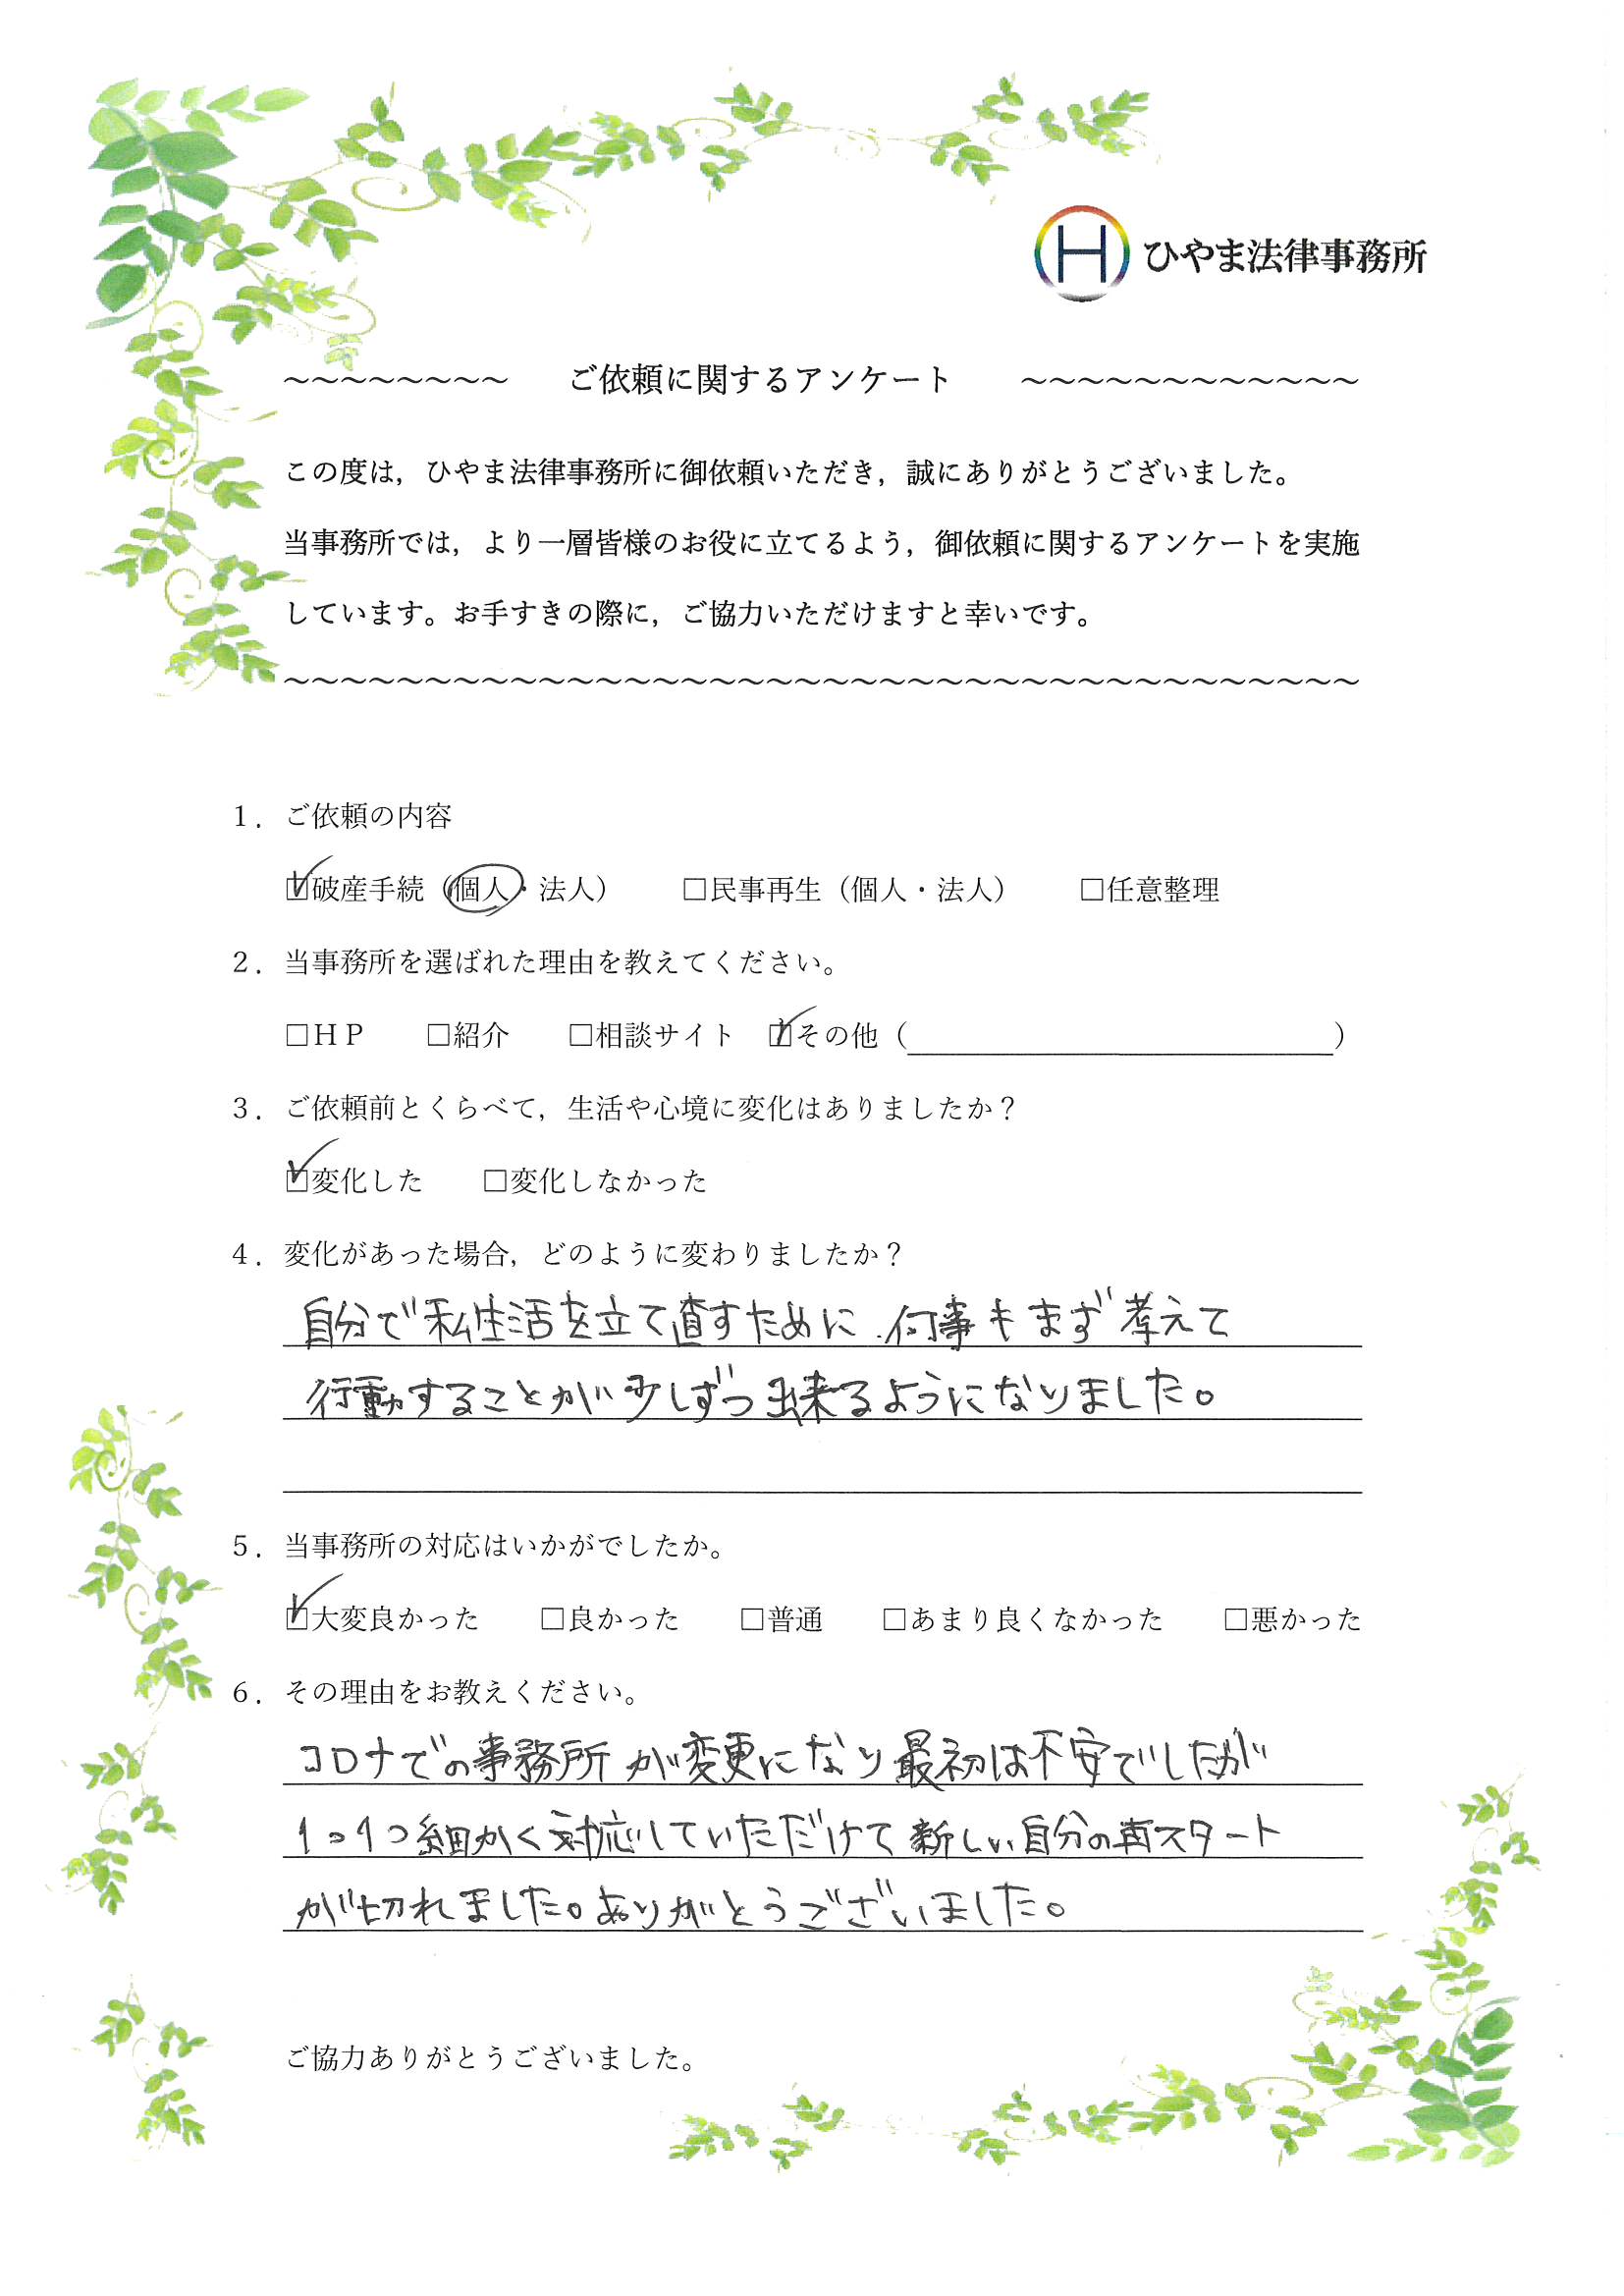 H ひやま法律事務所
～～～～～～～～ ご依頼に関するアンケート ～～～～～～～～～～～～
この度は，ひやま法律事務所に御依頼いただき，誠にありがとうございました。
当事務所では，より一層皆様のお役に立てるよう，御依頼に関するアンケートを実施
しています。お手すきの際に，ご協力いただけますと幸いです。
～～～～～～～～～～～～～～～～～～～～～～～～～～～～～～～～～～～～～～
１．ご依頼の内容
☑破産手続（個人・法人） □民事再生（個人・法人） □任意整理
２．当事務所を選ばれた理由を教えてください。
□ＨＰ □紹介 □相談サイト ☑その他（　　　　　　　　　　　　　　　）
３．ご依頼前とくらべて，生活や心境に変化はありましたか？
☑変化した □変化しなかった
４．変化があった場合，どのように変わりましたか？
自分で私生活を立て直すために、何事もまず考えて
行動することが少しずつ出来るようになりました。
５．当事務所の対応はいかがでしたか。
☑大変良かった □良かった □普通 □あまり良くなかった □悪かった
６．その理由をお教えください。
コロナでの事務所が変更になり最初は不安でしたが
1つ1つ細かく対応していただけて新しい自分の再スタート
が切れました。ありがとうございました。
ご協力ありがとうございました。